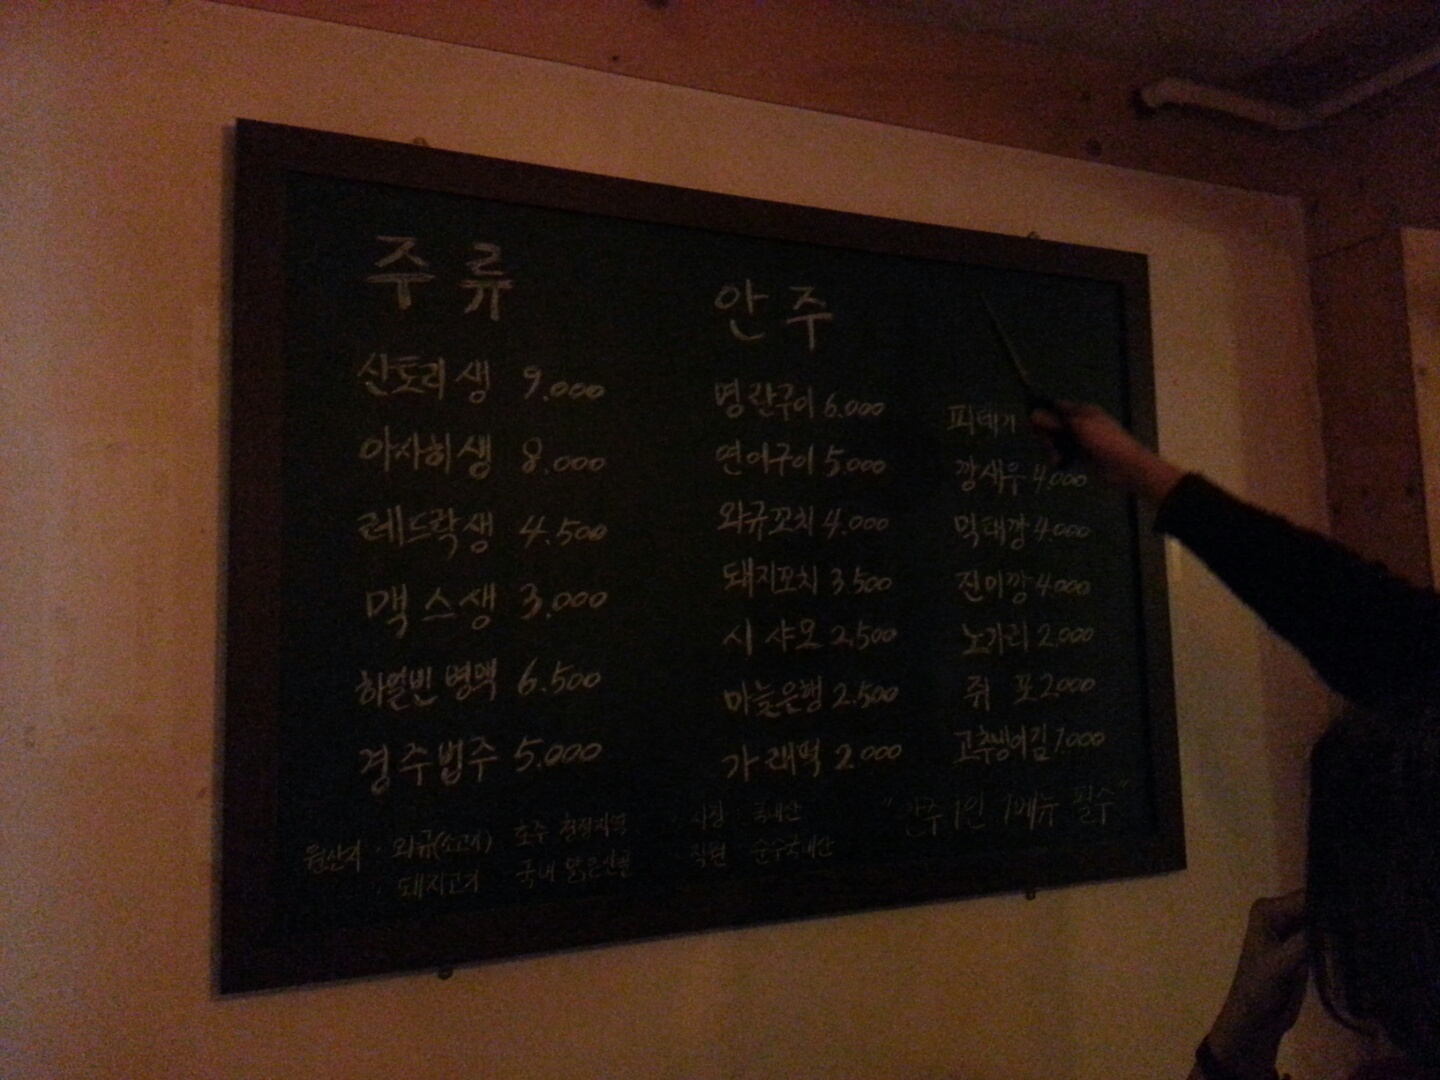 주류
산토리생 9.000
아사히생 8.000
레드락생 4.500
맥스생 3.000
하얼빈병맥 6.500
경주법주 5.000
안주
명란구이 6.000
연어구이 5.000
와규꼬치 4.000
돼지꼬치 3.500
시샤모 2.500
마늘은행 2.500
가래떡 2.000
피데기
깡새우 4.000
먹태깡 4.000
진미깡 4.000
노가리 2.000
쥐포 2.000
고추냉이김 1.000
원산지 · 와규(소고기) 호주 청정지역
· 돼지고기 국내 맑은산골
· 사장 국내산
· 직원 순수국내산
"안주 1인 1메뉴 필수"